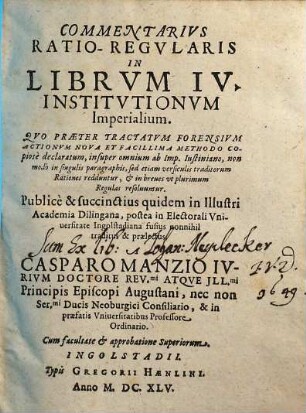 COMMENTARIVS
RATIO-REGVLARIS
IN
LIBRVM IV.
INSTITVTIONVM
Imperialium.
QVO PRÆTER TRACTATVM FORENSIVM
ACTIONVM NOVA ET FACILLIMA METHODO CO-
piosè declaratum, insuper omnium ab Imp. Iustiniano, non
modò in singulis paragraphis, sed etiam versiculis traditorum
Rationes redduntur, & in breues vt plurimum
Regulas resoluuntur.
Publicè & succinctius quidem in Illustri
Academia Dilingana, postea in Electorali Vni-
uersitate Ingolstadiana fusius nonnihil
traditus & prælectus
Sum Ex lib:
CASPARO MANZIO IV-
RIVM DOCTORE REV.mi ATQVE JLL.mi
Principis Episcopi Augustani, nec non
Ser.mi Ducis Neoburgici Consiliario, & in
præfatis Vniuersitatibus Professore
Ordinario.
1649
Cum facultate & approbatione Superiorum.
INGOLSTADII.
Typis GREGORII HÆNLINI.
Anno M. DC. XLV.